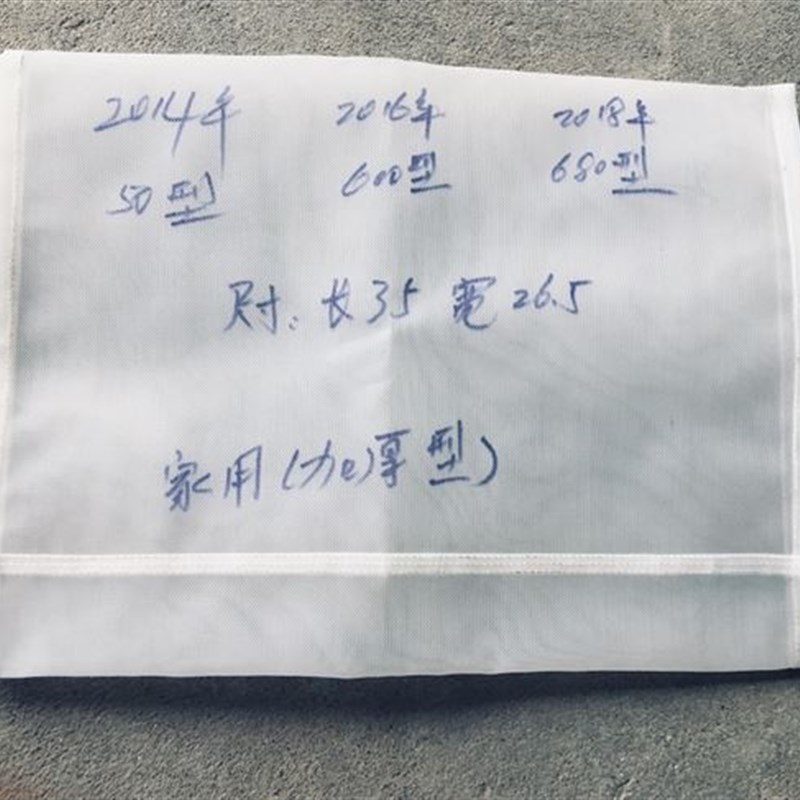 2014年 2016年 2018年
50型 600型 680型
尺寸：长35 宽26.5
家用(加厚型)